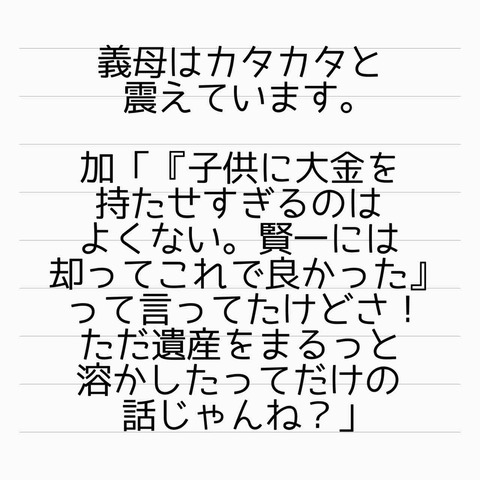 義母はカタカタと
震えています。
加「『子供に大金を
持たせすぎるのは
よくない。賢一には
却ってこれで良かった』
って言ってたけどさ！
ただ遺産をまるっと
溶かしたってだけの
話じゃんね？」